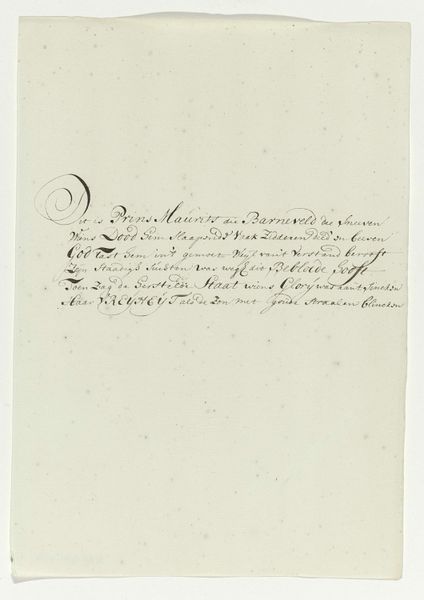 Dit is Prins Maurits die Barneveld die Sneeven
Wiens Dood hem Slaapende Vaak Zidderen deed en beeven
God tast hem in't gemoet Wijl van't Verstand berooft
Zijn Staatig Suchten was weg dit Beblaide Hooft
Toen Zag de Herstelde Staat wiens Glory was aant Sincken
Haar VREYHEYT als de Zon met goude Straalen Blincken